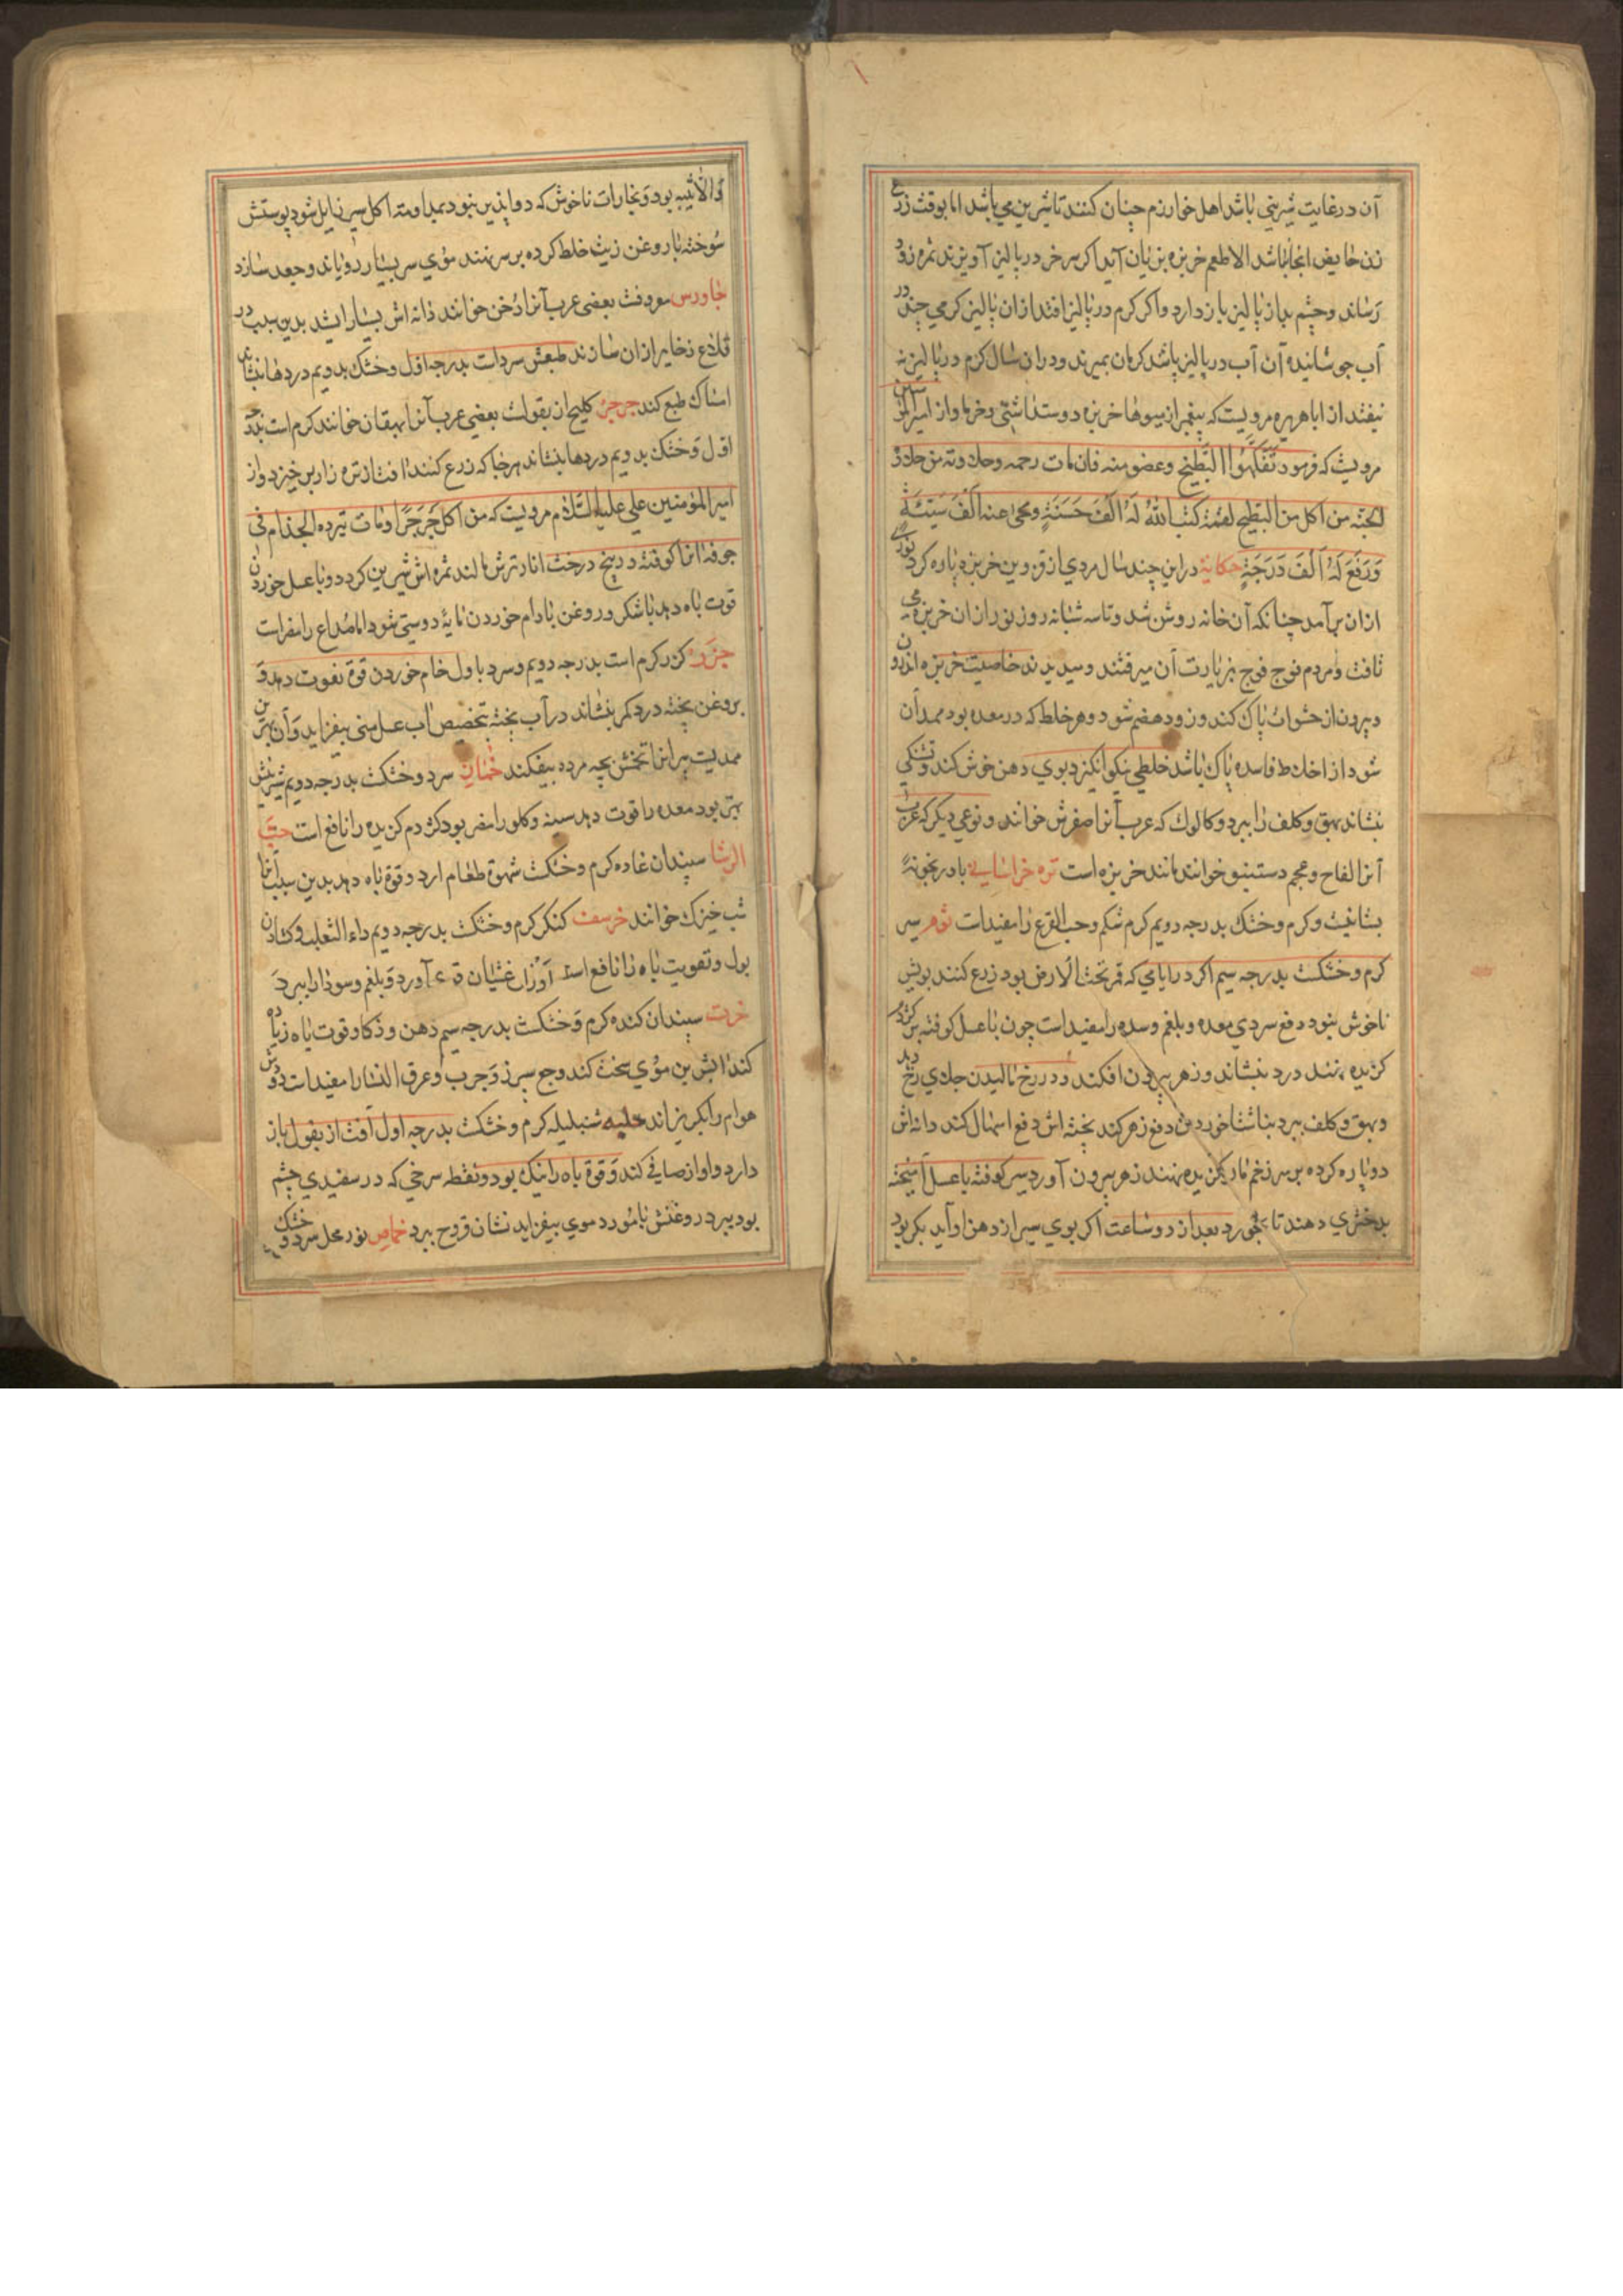 آن در غایت شیرینی باشد اهل خوارزم چنان کنند تا شیرین می باشد اما بوقت زرع
زن حایض انجا باشد الا طعم خربزه بزیان آید اکر سر خر در پالیز آویزند ثمره زود
رساند و چشم بد از پالیز باز دارد و اکر کرم در پالیز افتد ازان پالیز کرمی چند در
آب جوشانیده آن آب در پالیز پاشد کرمان بمیرند و دران سال کرم در پالیز نه
نیفتد از اباهریره مرویست که پیغمبر از میوها خربزه دوست داشتی و خرما و از امیرالمؤمنین
مرویست که فرمود تفکهوا البطیخ وعضو منه فان مات رحمه وحلاوته من حلاوة
الجنه من اکل من البطیخ لقمة کتب الله له الف حسنة ومحی عنه الف سیئة
ورفع له الف درجة حکایة در این چند سال مردی از قزوین خربزه پاره کرد نوری
ازان برآمد چنانکه آن خانه روشن شد و تا سه شبانه روز نور ازان خربزه می
تافت و مردم فوج فوج بزیارت آن میرفتند و میدیدند خاصیت خربزه اندرون
و بیرون از حشوات پاک کند و زود هضم شود و هر خلط که در معده بود ممد آن
شود از اخلاط فاسده پاک باشد خلطی نیکو انکیزد بوی دهن خوش کند و تشنکی
نشاند بهق و کلف را ببرد و کالوک که عرب آنرا صفرش خوانند و نوعی دیکر که عرب
آنرا لفاح و عجم دستنبو خوانند مانند خربزه است تره خراسانی بادرنجویه
بشانیث و کرم و خشک بدرجه دویم کرم شکم و حب القرع را مفیدات ثوم سیر
کرم و خشکست بدرجه سیم اکر در ایامی که قمر تحت الارض بود زرع کنند بویش
ناخوش نبود دفع سردی معده و بلغم و سده را مفیدات چون با عسل کوفته بر کژدم
کزیده نهند درد بنشاند و زهر بیرون افکند و در رخ مالیدن جلای رخ دهد
و بهق و کلف ببرد بناشتا خوردن دفع زهر کند پخته اش دفع اسهال کند دانه اش
دو پاره کرده بر سر زخم مار کزیده نهند زهر بیرون آورد سیر کوفته با عسل آمیخته
بدختری دهند تا بخورد بعد از دو ساعت اکر بوی سیر از دهن او آید بکر بود
والا ثیبه بود و بخارات ناخوش که دواپذیر نبود بمداومت اکل سیر زایل شود پوستش
سوخته با روغن زیت خلط کرده بر سر نهند موی سر بسیار رویاند و جعد سازد
جاورس معروفست بعضی عرب آنرا دخن خوانند دانه اش بسیار ایشد بدین سبب در
قلاع ذخایر ازان سازند طبعش سردات بدرجه اول و خشک بدویم دردها بنشاند
امساک طبع کند جرجر کلیج از بقولات بعضی عرب آنرا ایهقان خوانند کرم است بدرجه
اول و خشک بدویم دردها بنشاند هر جا که زرع کنند افت از تره زار برخیزد و از
امیرالمؤمنین علی علیه السلام مرویست که من اکل جرجرا ومات تیرده الجذام فی
جوفه انرا کوفته در بیخ درخت انار ترش مالند ثمره اش شیرین کردد و با عسل خوردن
قوت باه دهد با شکر و روغن بادام خوردن مایۀ دوستی شود اما صداع را مضرات
جزر کزر کرم است بدرجه دویم و سرد باول خام خوردن قوة تقویت دهد و
بروغن پخته درد کمر بنشاند در آب پخته بتخصیص اب عسل منی بیفزاید و آن بهترین
ممدیت پیرانرا تخمش بچه مرده بیفکند خمان سرد و خشکست بدرجه دویم شیرینش
بهتر بود معده را قوت دهد سینه و کلو را مضر بود کژدم کزیده را نافع است حب
الرشاد سپندان غاده کرم و خشکست شهوة طعام ارد و قوة باه دهد بدین سبب آنرا
شب خیزک خوانند خرسف کنکر کرم و خشکست بدرجه دویم داء الثعلب و کشادن
بول و تقویت باه را نافع است آواز غثیان قی آورد و بلغم و سودا را ببرد
خرت سپندان کنده کرم و خشکست بدرجه سیم ذهن و ذکا و قوت باه زیاده
کند ابش بن موی سخت کند وجع سپرز و جرب و عرق النسا را مفیدات دودش
هوام را بکریزاند حلبه شنبلیله کرم و خشکست بدرجه اول آفت از بقول باز
دارد و اواز صافی کند و قوة باه را نیک بود و نقطه سرخی که در سفیدی چشم
بود ببرد روغنش با مورد موی بیفزاید نشان قروح ببرد حماض نور محل سرد و خشک